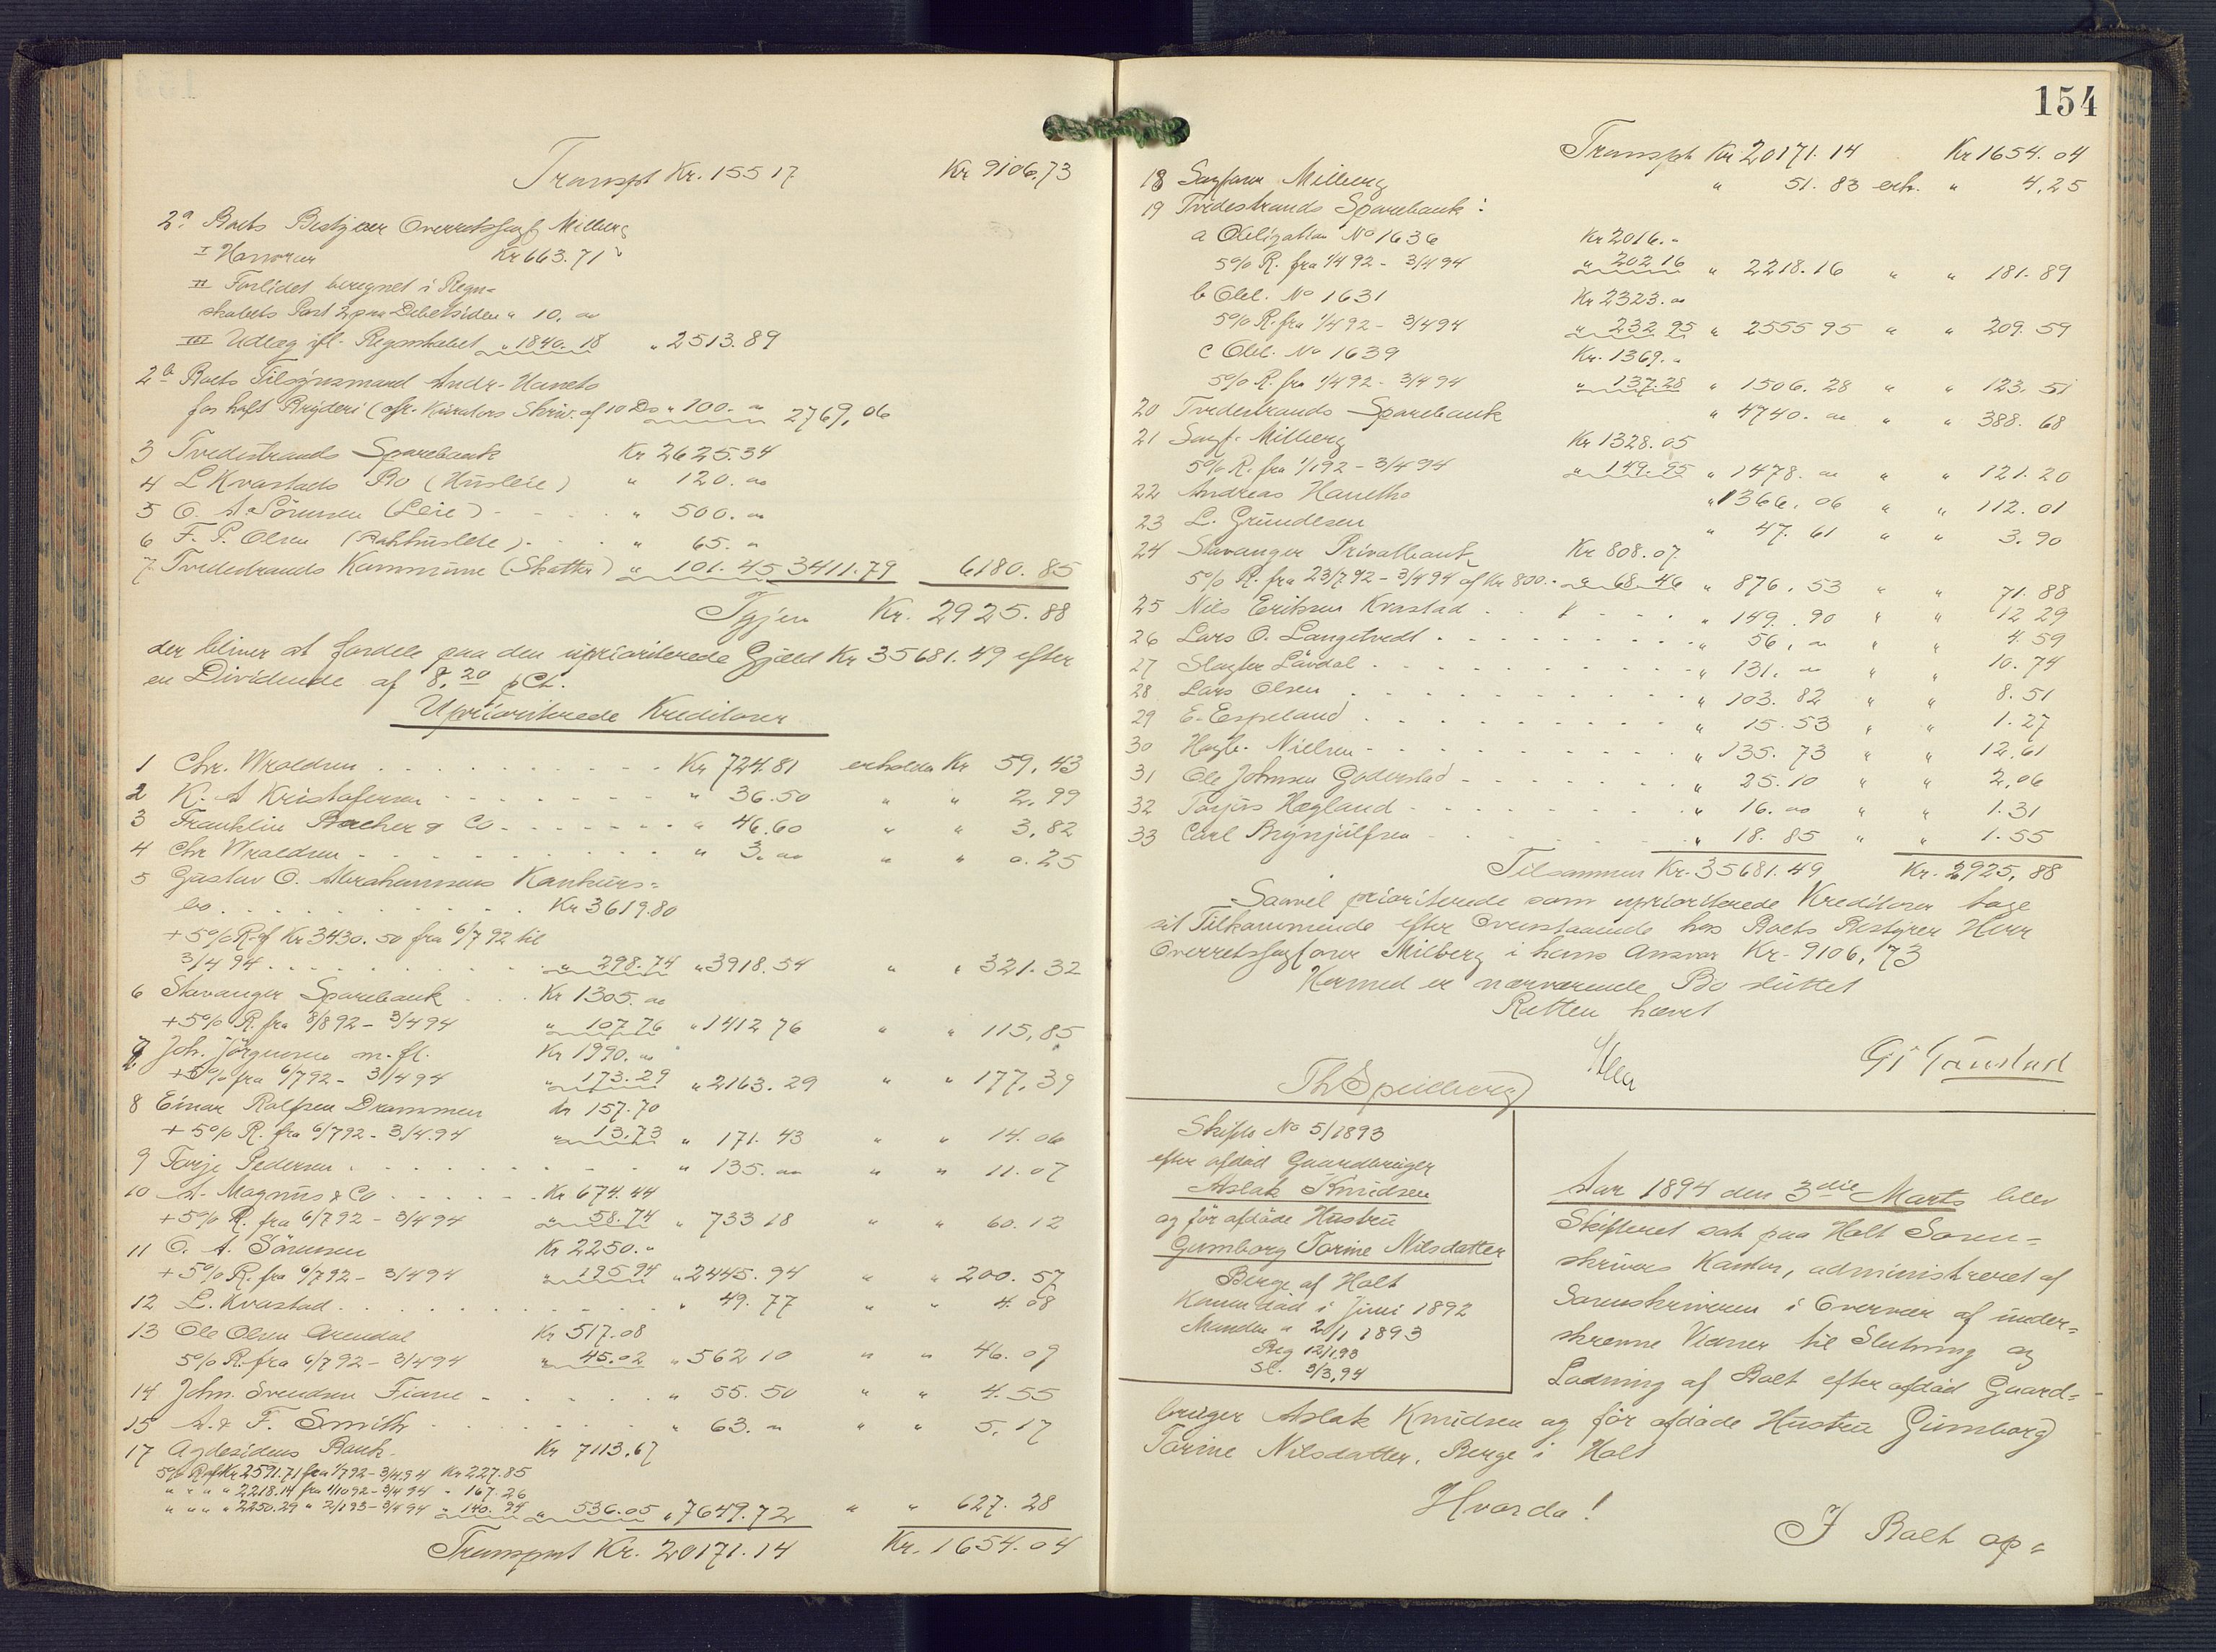 Transpt Kr. 155 17 Kr 9106.73
2a Boets Bestyrer Overretssagf Milberg
I Honorar Kr 663.71
II Forlidet beregnet i Regn-
skabets Post 2 paa Debetsiden " 10. "
III Udlæg ifl. Regnskabet " 1840. 18 " 2513.89
2b Boets Tilsynsmand Andr. Haneto
for havt Bryderi (cfr. Kurators Skriv. af 10 Ds " 100. " 2769,06
3 Tvedestrands Sparebank Kr 2625.34
4 L Kvastads Bo (Husleie) " 120. "
5 O. A. Sörensen (Leie) " 500. "
6 F. P. Olsen (Pakhusleie) " 65. "
7 Tvedestrands Kommune (Skatter) " 101. 45 3411.79 6180. 85
Igjen Kr. 2925.88
der bliver at fordele paa den uprioriterede Gjæld Kr 35681.49 efter
en Dividende af 8.20 pCt.
Uprioriterede Kreditorer
1 Chr. Wroldsen Kr 724.81 erholder Kr 59,43
2 K. A Kristofersen " 36.50 " " 2,99
3 Franklin Bacher & Co " 46.60 " " 3,82
4 Chr Wroldsen " 3. " " " 0.25
5 Gustav O. Abrahamsens Konkurs-
bo Kr 3619.80
+ 5% R. af Kr 3430. 50 fra 6/7 92 til
3/4 94 " 298.74 " 3918.54 " " 321.32
6 Stavanger Sparebank Kr 1305. "
+ 5% R. fra 8/8 92 - 3/4 94 " 107.76 " 1412 76 " " 115,85
7 Joh. Jörgensen m. fl. Kr 1990. "
+ 5% fra 6/7 92 - 3/4 94 " 173.29 " 2163.29 " " 177,39
8 Einar Rolfsen Drammen kr 157.70
+ 5% R. fra 6/7 92 - 3/4.94 " 13.73 " 171. 43 " " 14.06
9 Torje Pedersen " 135. " " " 11.07
10 A. Magnus & Co Kr 674.44
+ 5% R. fra 6/7 92 - 3/4 94 " 58.74 " 733 18 " " 60.12
11 O. A. Sörensen Kr 2250. "
+ 5% R. fra 6/7 92 - 3/4 94 " 195 94 " 2445. 94 " " 200. 57
12 L. Kvastad " 49. 77 " " 4.08
13 Ole Olsen Arendal Kr 517.08
5% R. fra 6/7 92 - 3/4 94 " 45.02 " 562 10 " " 46.09
14 John. Svendsen Fiane " 55. 50 " " 4.55
15 A. & F. Smith " 63. " " " 5,17
17 Agdesidens Bank Kr 7113.67
5% R af Kr 2591.71 fra 1/7 92 - 3/4.94 Kr 227.85
" " " 2218.14 fra 1/10 92 - 3/4 94 " 167.26
" " " " 2250.29 " 2/1 93 - 3/4 94 " 140. 94 " 536.05 " 7649.72 " " 627. 28
Transport Kr. 20171.14 Kr. 1654.04
154
Transpt Kr 20171.14 Kr 1654.04
18 Sagfører Milberg " 51. 83 erh. " 4,25
19 Tvedestrands Sparebank :
a Obligation No 1636 Kr 2016. "
5% R. fra 1/4 92 - 3/4 94 " 202 16 " 2218.16 " " 181.89
b Obl. No 1631 Kr 2323. "
5% R. fra 1/4 92 - 3/4 94 " 232 95 " 2555 95 " " 209. 59
c Obl. No 1639 Kr. 1369. "
5% R. fra 1/4 92 - 3/4 94 " 137.28 " 1506. 28 " " 123. 51
20 Tvedestrands Sparebank " 4740. " " " 388. 68
21 Sagf. Milberg Kr 1328.05
5% R. fra 1/1 92 - 3/4 94 " 149. 95 " 1478. " " " 121.20
22 Andreas Hanetho " 1366. 06 " " 112.01
23 L. Grundesen " 47. 61 " " 3.90
24 Stavanger Privatbank Kr 808.07.
5% R. fra 23/7 92 - 3/4 94 af Kr 800. " 68. 46 " 876. 53 " " 71. 88
25 Nils Eriksen Kvastad " 149. 90 " " 12 29
26 Lars O. Langetvedt " 56, " " " 4.59
27 Slagter Lövdal " 131. " " " 10. 74
28 Lars Olsen " 103. 82 " " 8.51
29 E. Espeland " 15. 53 " " 1.27
30 Hagb. Nielsen " 135. 73 " " 12,61
31 Ole Johnsen Goderstad " 25.10 " " 2,06
32 Torjus Hegland " 16. " " " 1.31
33 Carl Brynjulfsen " 18. 85 " " 1.55
Tilsammen Kr. 35681.49 Kr. 2925, 88
Saavel prioriterede som uprioriterede Kreditorer tage
sit Tilkommende efter Ovenstaaende hos Boets Bestyrer Herr
Overretssagfører Milberg i hans Ansvar Kr. 9106,73
Hermed er nærværende Bo sluttet
Retten hævet
Th Speilberg
Skifte No 5/1893
efter afdød Gaardbruger
Aslak Knudsen
og før afdøde Hustru
Gumborg Torine Nilsdatter
Berge af Holt
Konen död i Juni 1892
Manden " 20/1 1893
Beg 12/1.93
Sl. 3/3,94
Aar 1894 den 3die Marts blev
Skifteret sat paa Holt Soren-
skrivers Kontor, administreret af
Sorenskriveren i Overvær af under-
skrevne Vidner til Slutning og
Lodning af Boet efter afdød Gaard-
bruger Aslak Knudsen og før afdøde Hustru Gumborg
Torine Nilsdatter, Berge i Holt
Hvorda!
I Boet op-